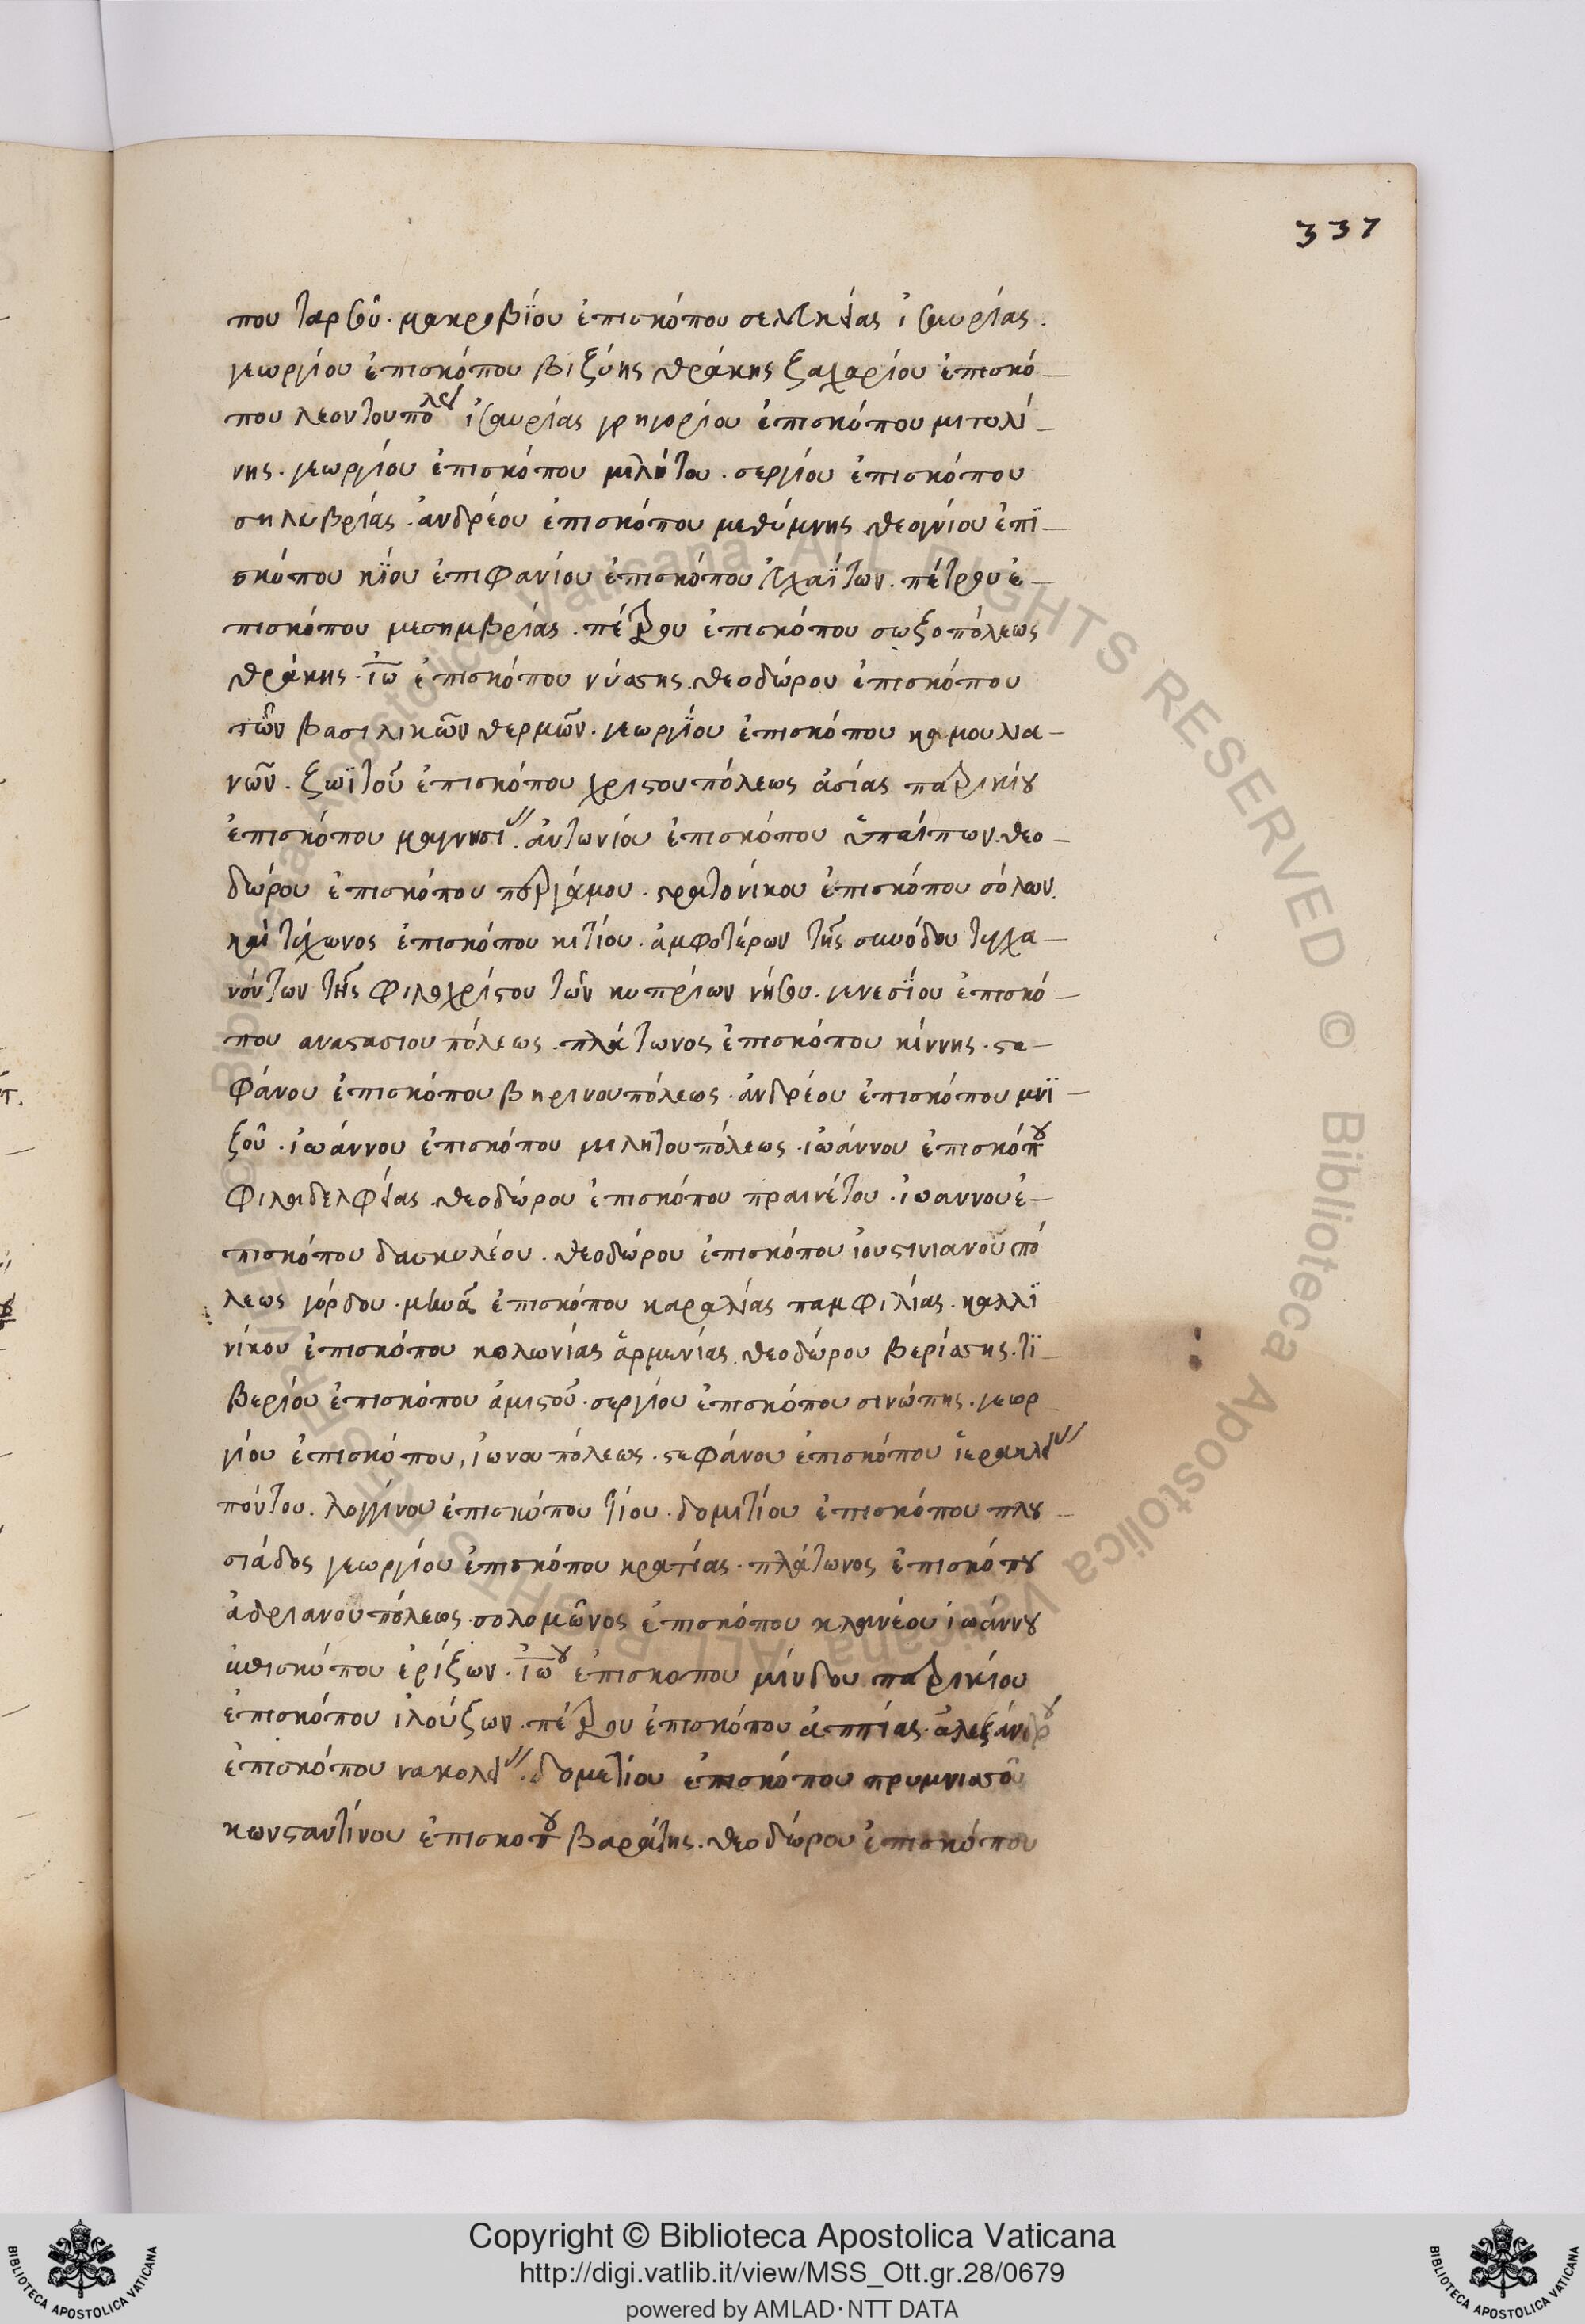 337
που ταρσοῦ. μακροβΐου ἐπισκόπου σελευκείας ἰσαυρίας.
γεωργίου ἐπισκόπου βιζύης θράκης ζαχαρίου ἐπισκό
που λεοντουπολει ἰσαυρίας γρηγορίου ἐπισκόπου μιτυλί
νης. γεωργίου ἐπισκόπου μιλήτου. σεργίου ἐπισκόπου
σηλυβρίας. ἀνδρέου ἐπισκόπου μεθύμνης θεογνίου ἐπϊ
σκόπου κΐου ἐπιφανίου ἐπισκόπου εὐχαΐτων. πέτρου ἐ
πισκόπου μεσημβρίας. πέτρου ἐπισκόπου σωζοπόλεως
θράκης. ἰω ἐπισκόπου νύσσης. θεοδώρου ἐπισκόπου
τῶν βασιλικῶν θερμῶν. γεωργΐου ἐπισκόπου καμουλια
νῶν. ζωϊτοῦ ἐπισκόπου χριστουπόλεως ἀσίας πατρικίου
ἐπισκόπου μαγνησι. ἀντωνίου ἐπισκόπου ὑπαίπων. θεο
δώρου ἐπισκόπου περγάμου. στρατονίκου ἐπισκόπου σόλων.
καὶ τύχωνος ἐπισκόπου κιτίου. ἀμφοτέρων τῆς συνόδου τυγχα
νόντων τῆς φιλοχρίστου τῶν κυπρίων νήσου. γενεσΐου ἐπισκό
που αναστασιουπόλεως. πλάτωνος ἐπισκόπου κίννης. στε
φάνου ἐπισκόπου βηρινουπόλεως. ἀνδρέου ἐπισκόπου μνϊ
ζοῦ. ἰωάννου ἐπισκόπου μελητουπόλεως. ἰωάννου ἐπισκόπου
φιλαδελφείας. θεοδώρου ἐπισκόπου πραινέτου. ἰωαννου ἐ
πισκόπου δασκυλέου. θεοδώρου ἐπισκόπου ἰουστινιανουπό
λεως γόρδου. μηνᾶ ἐπισκόπου καραλίας παμφιλίας. καλλϊ
νίκου ἐπισκόπου κολωνίας ἀρμενίας. θεοδώρου βερίσσης. τϊ
βερίου ἐπισκόπου ἀμιστοῦ. σεργίου ἐπισκόπου σινώπης. γεωρ
γίου ἐπισκόπου, ἰωνουπόλεως. στεφάνου ἐπισκόπου ἱερακλει
πόντου. λογγίνου ἐπισκόπου τίου. δομιτίου ἐπισκόπου πλου
σιάδος γεωργίου ἐπισκόπου κρατίας. πλάτωνος ἐπισκόπου
ἀδριανουπόλεως. σολομῶνος ἐπισκόπου κλανέου ἰωάννου
ἐπισκόπου ἐρίζων. ἰωου ἐπισκοπου μίνδου πατρικίου
ἐπισκόπου ἰλούζων. πέτρου ἐπισκόπου ἀππίας. ἀλεξάνδρου
ἐπισκόπου νακολεί. δομετίου ἐπισκόπου πρυμνισσοῦ
κωνσταντίνου ἐπισκοπου βαράτης. θεοδώρου ἐπισκόπου
Copyright © Biblioteca Apostolica Vaticana
http://digi.vatlib.it/view/MSS_Ott.gr.28/0679
powered by AMLAD·NTT DATA